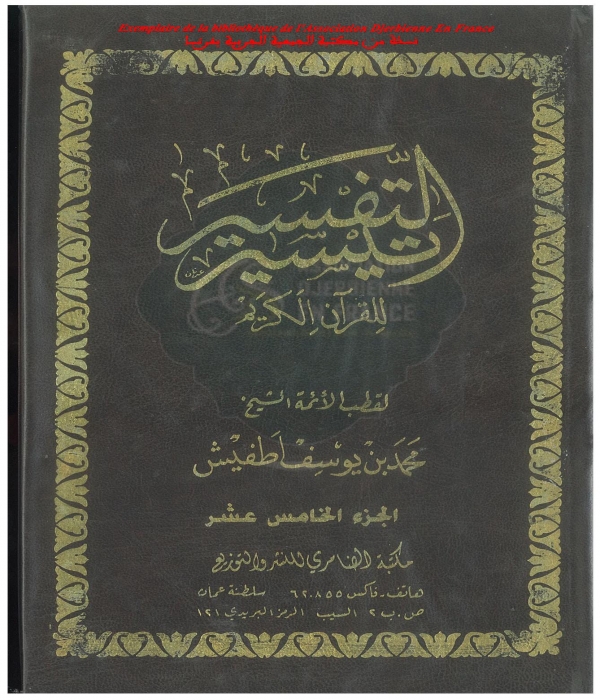 Exemplaire de la bibliothèque de l'Association Djerbienne En France
نسخة من مكتبة الجمعية الجربية بفرنسا
تيسير التفسير
للقرآن الكريم
لقطب الأئمة الشيخ
محمد بن يوسف اطفيش
الجزء الخامس عشر
مكتبة الضامري للنشر والتوزيع
هاتف - فاكس ٦٢٠٨٥٥ سلطنة عمان
ص.ب ٢ السيب الرمز البريدي ١٢١